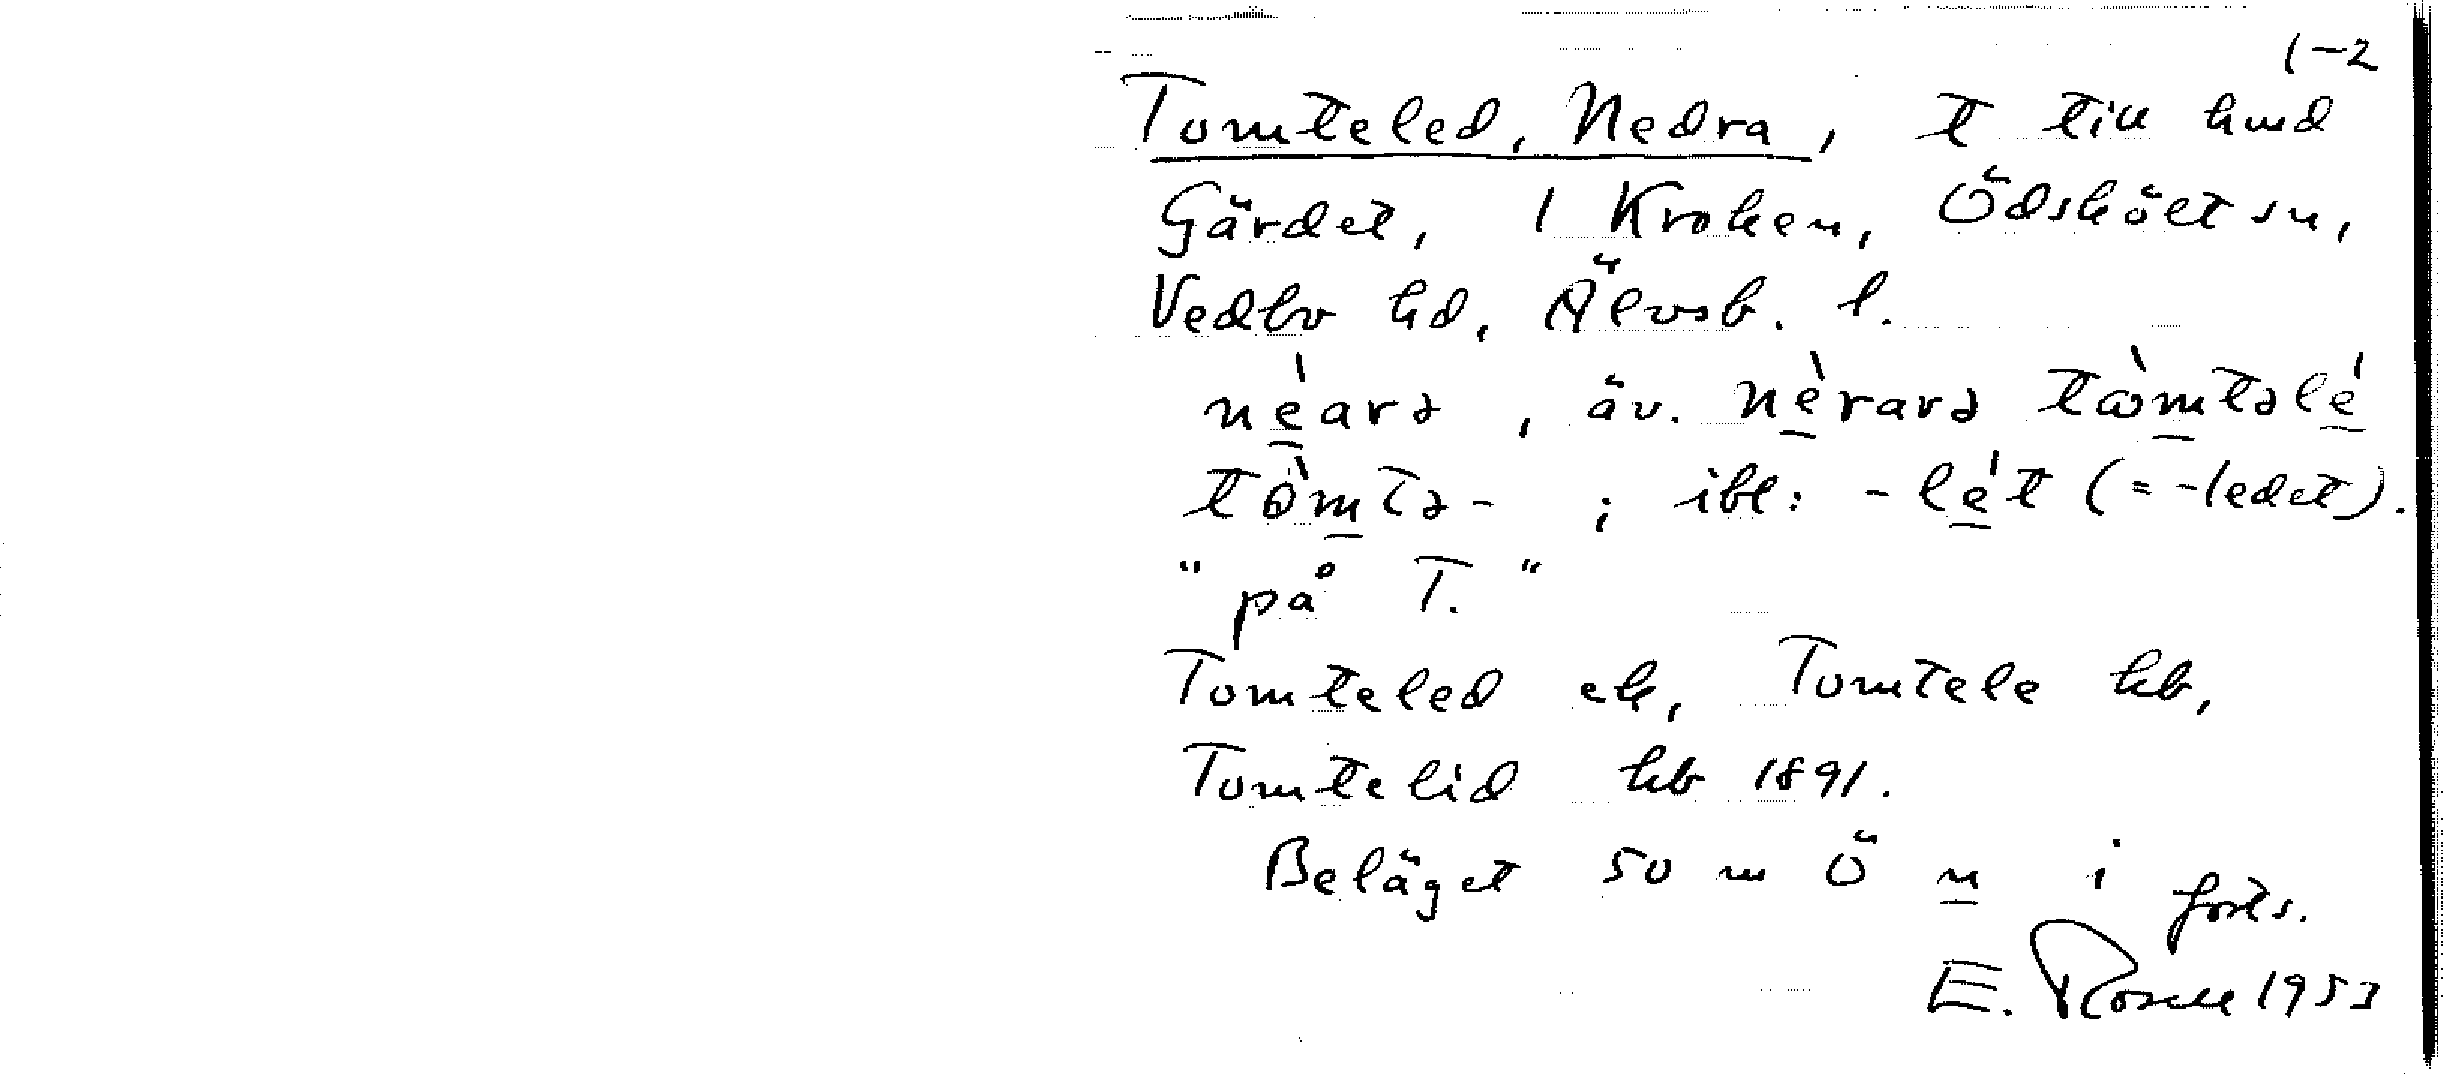 1-2
Tomteled, Nedra, t till hmd
Gärdet, 1 Kroken, Ödskölt sn,
Vedbo hd, Älvsb. l.
néarə, äv. nèrarə tòmtəlé
tòmtə- ; ibl: -lét (= -ledet).
"på T."
Tomteled ek, Tomtele kb,
Tomtelid kb 1891.
Beläget 50 m Ö n i
forts.
E. Rosell 1953